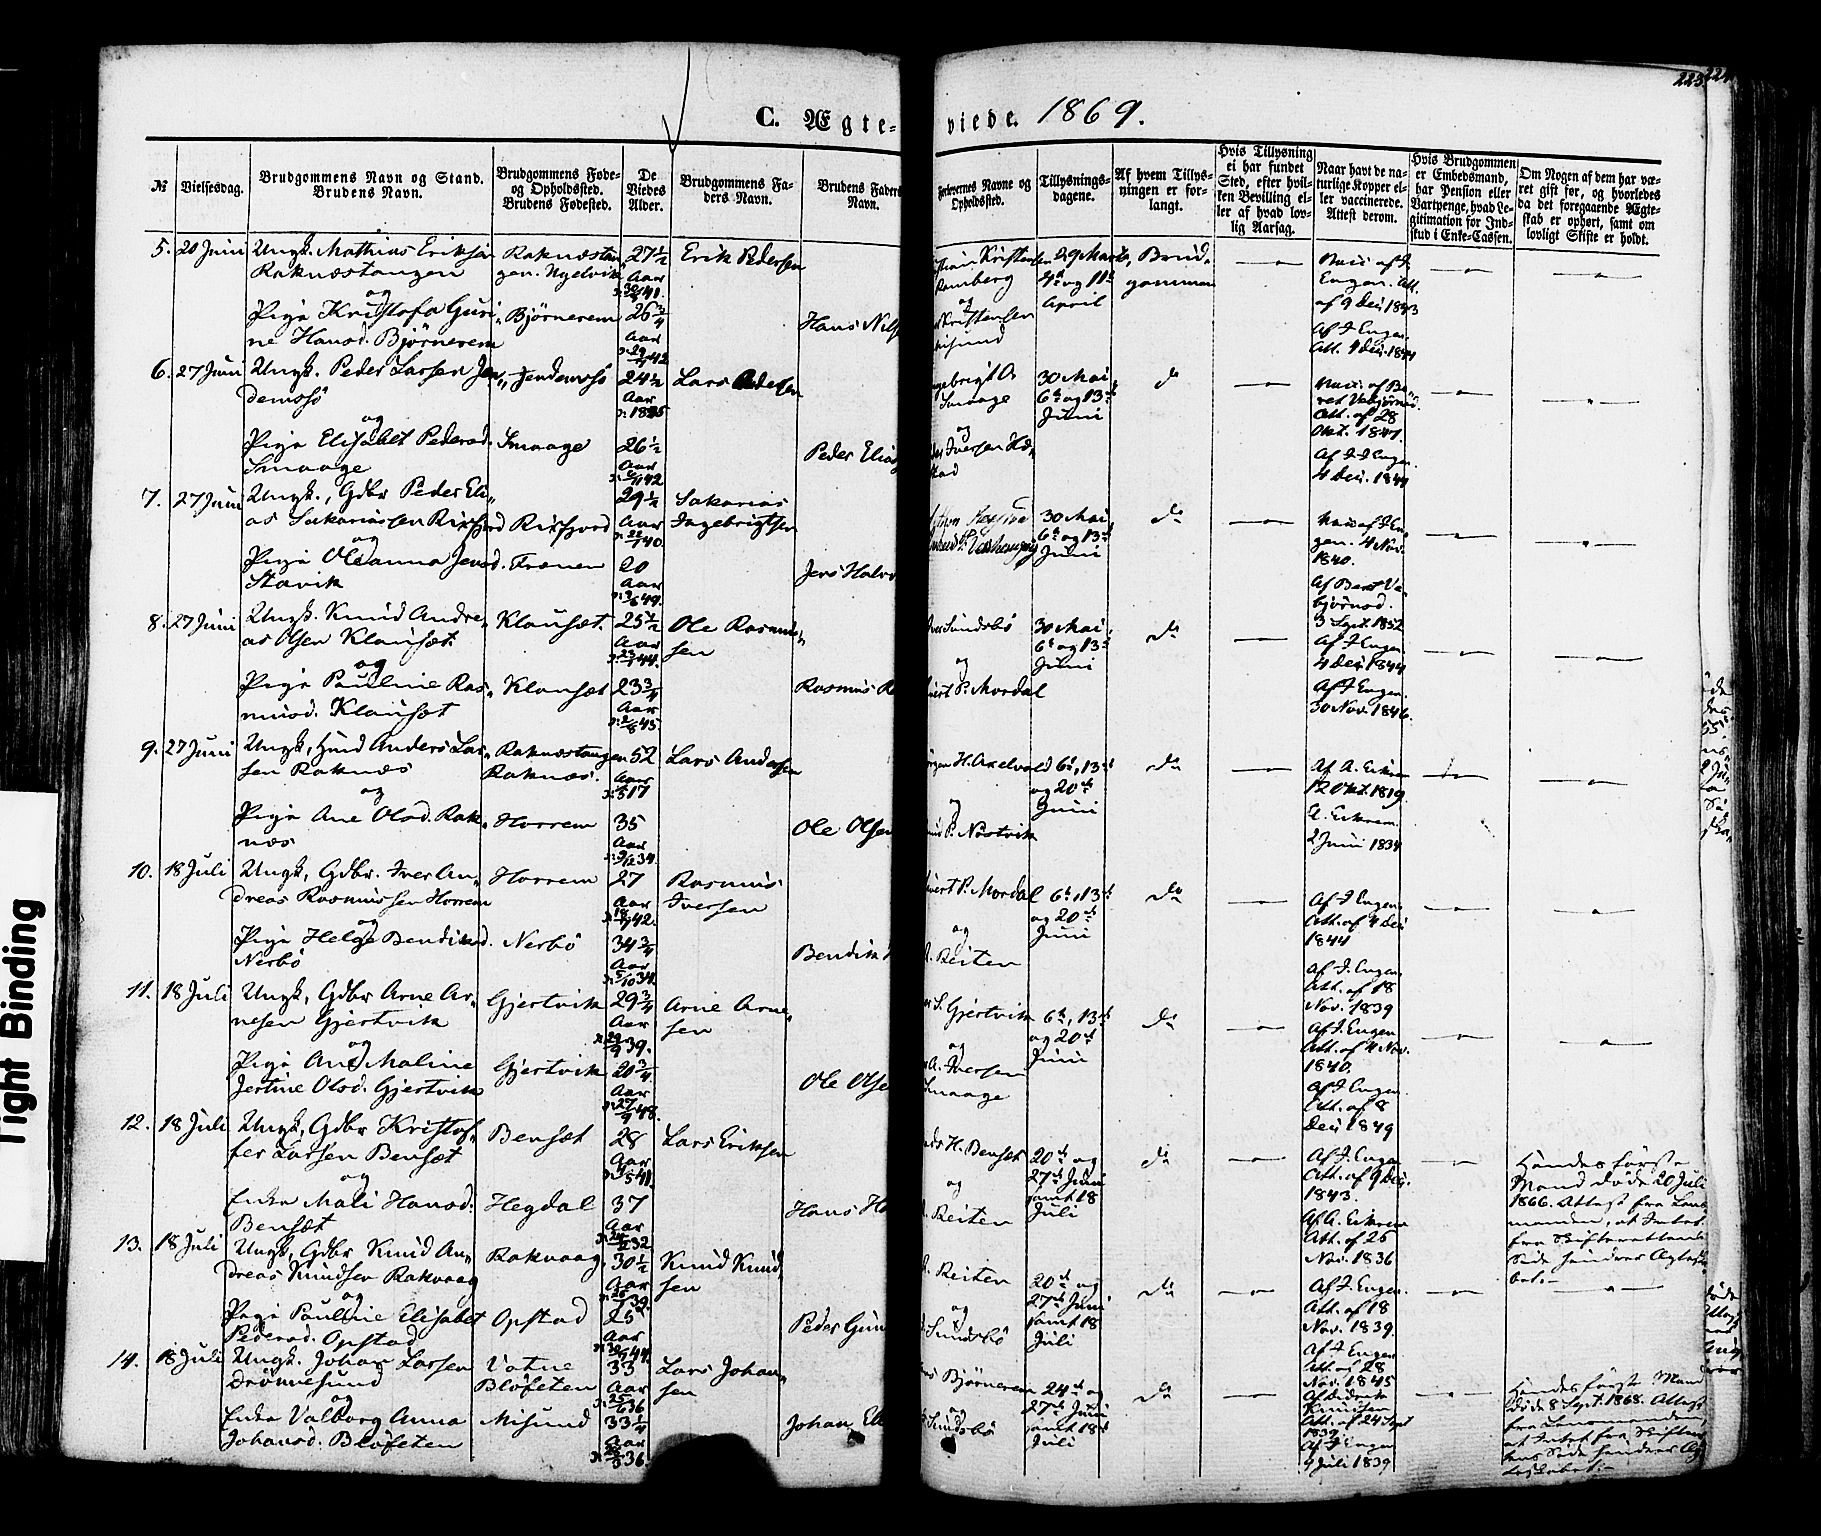 223 224
C. Ægte- viede. 1869.
№
Vielsesdag.
Brudgommens Navn og Stand.
Brudens Navn.
Brudgommens Føde-
og Opholdssted.
Brudens Fødested.
De
Viedes
Alder.
Brudgommens Fa-
ders Navn.
Brudens Faders
Navn.
Forlovernes Navne og
Opholdssted.
Tillysnings-
dagene.
Af hvem Tillys-
ningen er for-
langt.
Hvis Tillysning
ei har fundet
Sted, efter hvil-
ken Bevilling el-
ler af hvad lov-
lig Aarsag.
Naar havt de na-
turlige Kopper el-
ler vaccinerede.
Attest derom.
Hvis Brudgommen
er Embedsmand,
har Pension eller
Vartpenge, hvad Le-
gitimation for Ind-
skud i Enke-Cassen.
Om Nogen af dem har væ-
ret gift før, og hvorledes
da det foregaaende Ægte-
skab er ophørt, samt om
lovligt Skifte er holdt.
5. 20 Juni Ungk. Mathias Eriksen
Raknæstangen
og
Pige Kristofa Guri-
ne Hansd. Bjørnerem
Raknæstan
gen. Nyelvik
Bjørnerem
27½
Aar
26¾
Aar
Erik Pedersen
Hans Nils
Kristensen
Ramberg
og
Kristensen
29 Marts,
4de og 11te
April
Brud-
gommen
Engen. Att.
af 9 Dei 1843
Af J Engen.
Att. 4 Dei. 1844
6. 27 Juni Ungk. Peder Larsen Jen-
demsø
og
Pige Elisabet Pedersd.
Smaage
Jendemsø
Smaage
24½
Aar
1845
26½
Aar
Lars Pedersen
Peder Elia
Smaage
og
Iversen
30 Mai,
6te og 13de
Juni
do
Att. af 28
Okt. 1847.
Af J Engen.
4 Dei. 1844
7. 27 Juni Ungk., Gdbr Peder Eli-
as Sakariassen Rixfjord
og
Pige Oleanna Jensd.
Stavik
Rixfjord
Frænen
29½
Aar
20
Aar
Sakarias
Ingebrigtsen
Jens Halvo
30 Mai,
6te og 13de
Juni
do
gen. 4 Nov.
1840.
Af Beret Ve-
bjørnsd.
3 Sept. 1852
8. 27 Juni Ungk. Knud Andre-
as Olsen Klauset.
og
Pige Pauline Ras-
musd. Klauset
Klauset.
Klauset
25½
Aar
23¾
Aar
Ole Rasmus-
sen
Rasmus R
Sundsbø
og
P. Mordal
30 Mai,
6te og 13de
Juni
do
Af J Engen
4 Dei 1844
Af J Engen.
30 Nov. 1846.
9. 27 Juni Ungk, Huusd Anders Lar-
sen Raknæs
og
Pige Ane Olsd. Rak-
næs
Raknæstangen
Raknæs.
Horrem
52
Aar
35
Aar
Lars Andersen
Ole Olsen
H. Akelvold
og
P. Nostvik
6te, 13de
og 20de
Juni
do
Af A. Eikrem
12 Okt. 1819.
A. Eikrem
2 Juni 1834
10. 18 Juli Ungk, Gdbr. Iver An-
dreas Rasmussen Horrem
og
Pige Helge Bendiksd.
Nerbø
Horrem
Nerbø
27
Aar
34¾
Aar
Rasmus
Iversen
Bendik
P. Mordal
og
Reiten
6te, 13de
og 20de
Juni
do
Af J Engen.
Att. af 4 Dei
1844
Af J. Engen.
Att. af 18
Nov. 1839
11. 18 Juli Ungk, Gdbr Arne Ar-
nesen Gjertvik
og
Pige Ane Maline
Jertine Olsd. Gjertvik
Gjertvik
Gjertvik
29¾
Aar
20¾
Aar
Arne Arne-
sen
Ole Olse
S. Gjertvik
og
A. Iversen
Smaage
6te, 13de
og 20de
Juni
do
Af J. Engen
Att. af 4 Nov.
1840.
Af J Engen
Att. af 8
Dei 1849
12. 18 Juli Ungk, Gdbr Kristof-
fer Larsen Bensæt
og
Enke Mali Hansd.
Bensæt
Bensæt
Hegdal
28
Aar
37
Aar
Lars Eriksen
Hans H
H. Bensæt
og
Reiten
20de og
27de Juni
samt 18
Juli
do
Af J. Engen
Att. af 9 Dei.
1843.
Af A. Eikrem
Att. af 25
Nov. 1836
Hendes første
Mand døde 20 Juli
1866. Attest fra Lens-
manden, at Intet
fra Skifterettens
Side hindrer Ægteska-
bet.
13. 18 Juli Ungk, Gdbr Knud An-
dreas Knudsen Rakvaag
og
Pige Pauline Elisabet
Pedersd. Opstad
Rakvaag
Opstad
30½
Aar
25
Aar
Knud Knud-
sen
Peder Gun
Reiten
og
Sundsbø
20de og
27de Juni
samt 18
Juli
do
Af J. Engen.
Att. af 18
Nov. 1839.
Af J Engen
Att. af 28
Nov. 1845
14. 18 Juli Ungk. Johan Larsen
Drønnesund
og
Enke Valborg Anna
Johansd. Bløfeten
Vatne
Bløfeten
Misund
33
Aar
33¼
Aar
Lars Johan-
sen
Johan El
Bjørnerem
og
Sundsbø
24de og
27de Juni
samt 18de
Juli
do
Knudsen
Att. af 24 Sept
1839.
Af J Engen
4 Juli 1839
Hendes første Mand
døde 8 Sept. 1868. Attest
fra Lensmanden,
at Intet fra Skifteret-
tens Side hindrer Æg-
teskabet.
Tight Binding